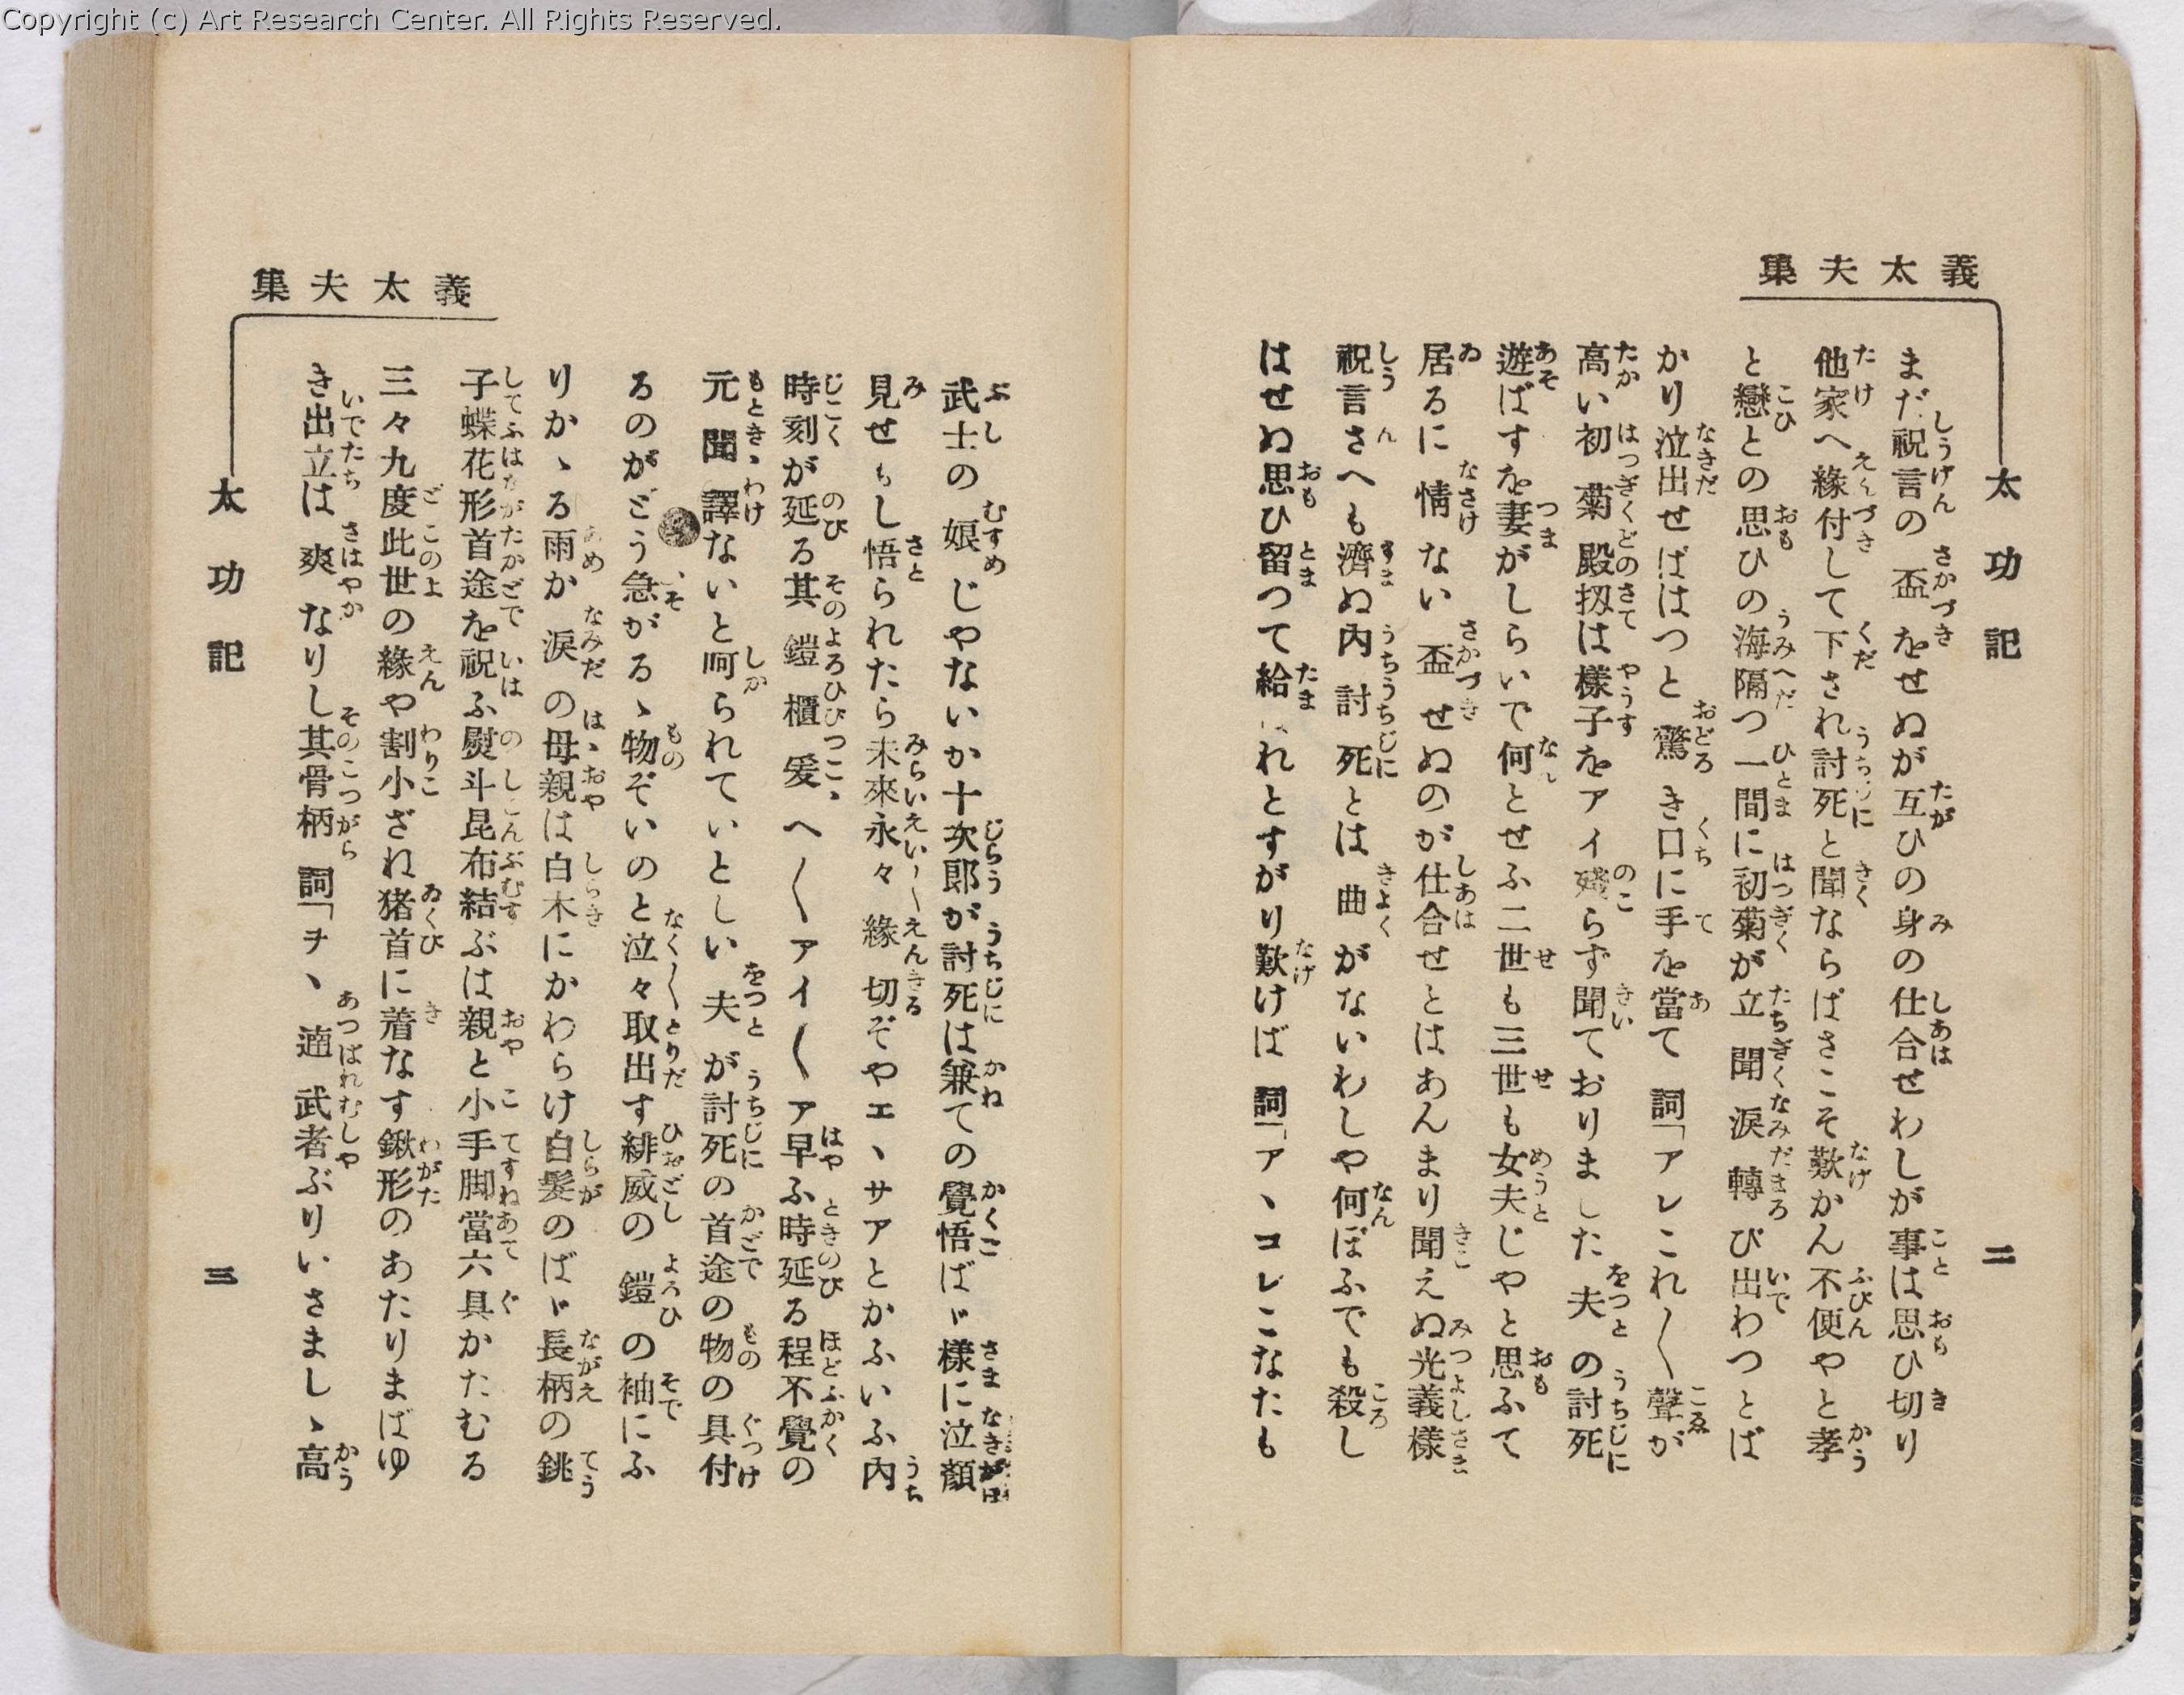 Copyright (c) Art Research Center. All Rights Reserved.
義太夫集
太功記
二
まだ祝言の盃をせぬが互ひの身の仕合せわしが事は思ひ切り
他家へ緣付して下され討死と聞ならばさこそ歎かん不便やと孝
と戀との思ひの海隔つ一間に初菊が立聞淚轉び出わつとば
かり泣出せばはつと驚き口に手を當て詞「アレこれ〳〵聲が
高い初菊殿扨は樣子をアイ殘らず聞ておりました夫の討死
遊ばすを妻がしらいで何とせふ二世も三世も女夫じやと思ふて
居るに情ない盃せぬのが仕合せとはあんまり聞えぬ光義樣
祝言さへも濟ぬ內討死とは曲がないわしや何ぼふでも殺し
はせぬ思ひ留つて給れとすがり歎けば詞「アヽコレこなたも
武士の娘じやないか十次郞が討死は兼ての覺悟ばゞ樣に泣顏
見せもし悟られたら未來永々緣切ぞやエヽサアとかふいふ內
時刻が延る其鎧櫃爰へ〳〵アイ〳〵ア早ふ時延る程不覺の
元聞譯ないと呵られていとしい夫が討死の首途の物の具付
るのがどう急がるゝ物ぞいのと泣々取出す緋威の鎧の袖にふ
りかゝる雨か淚の母親は白木にかわらけ白髮のばゞ長柄の銚
子蝶花形首途を祝ふ熨斗昆布結ぶは親と小手脚當六具かたむる
三々九度此世の緣や割小ざね猪首に着なす鍬形のあたりまばゆ
き出立は爽なりし其骨柄詞「ヲヽ遖武者ぶりいさましゝ高
義太夫集
太功記
三